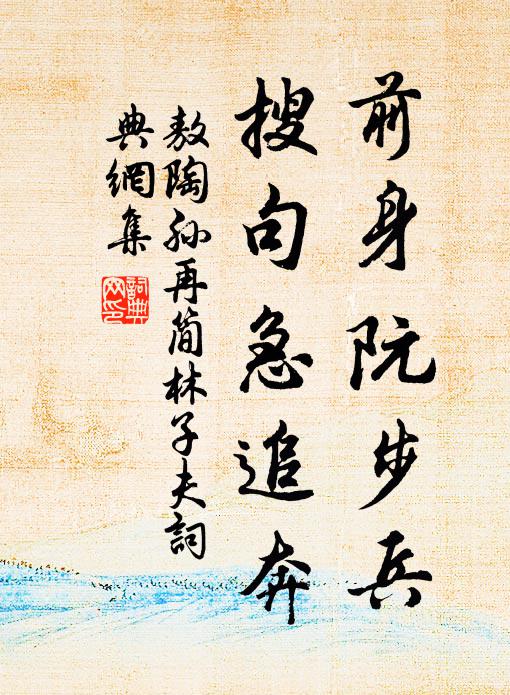 前身阮步兵
搜句急追奔
敖陶孙再简林子夫詞
典網集
詞典網印